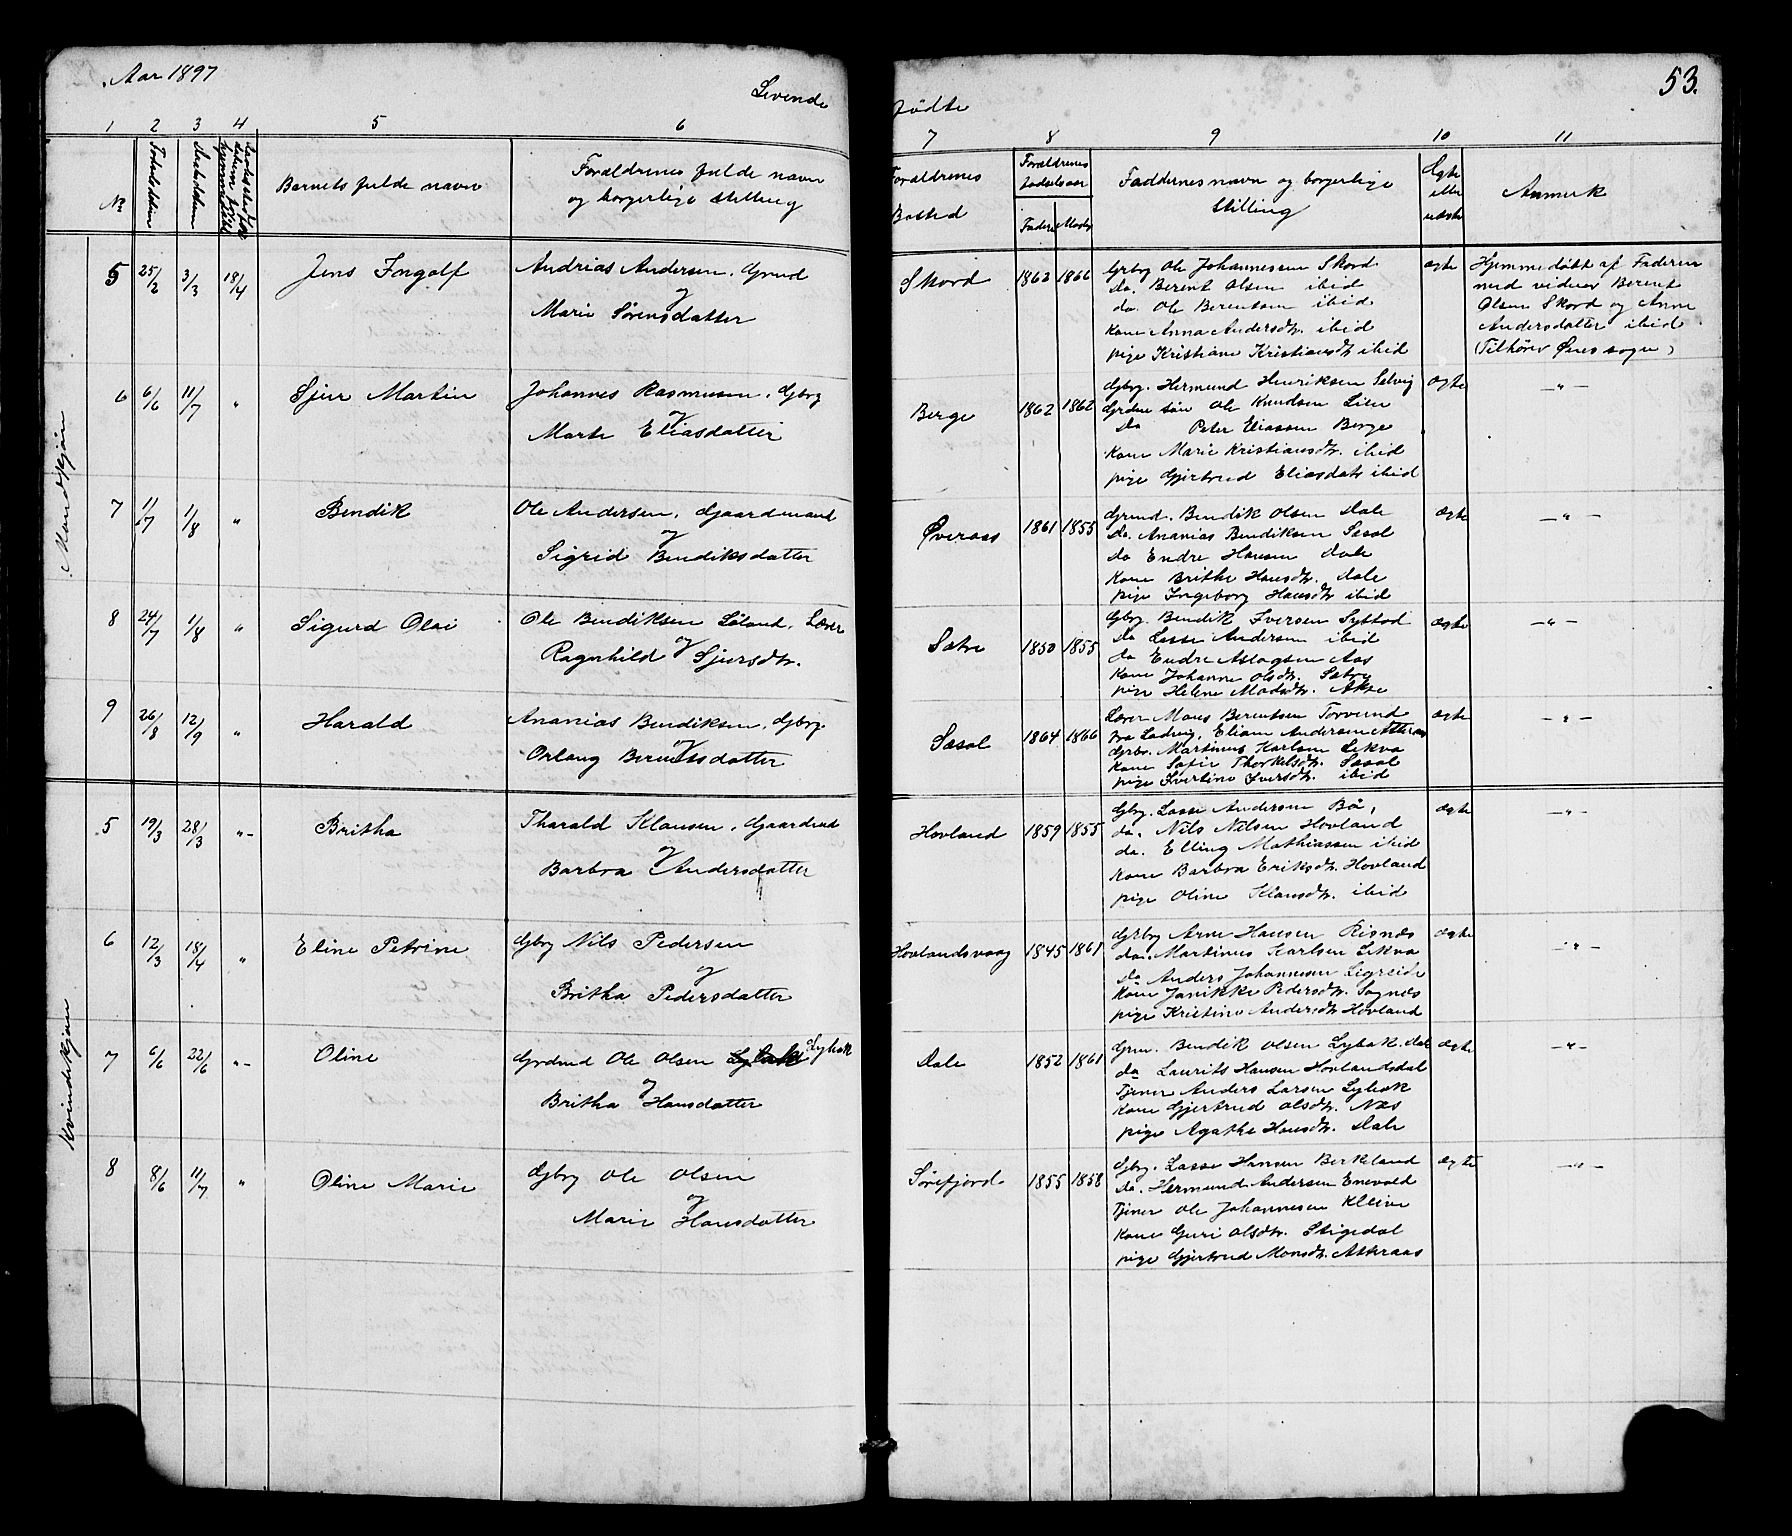 Aar 1897
Levende
fødte
53.
1 2 3 4 5 6 7 8 9 10 11
No
Fødselsdatum
Daabsdatum
Barnets fulde navn
Forældrenes fulde navn
og borgerlige stilling
Forældrenes
Bosted
Forældrenes
fødselsaar
Faders Moders
Faddernes navn og borgerlige
stilling
Ægte
eller
uægte
Anmerk
Mandkjøn
5 25/2 3/3 18/4 Jens Ingolf
Andrias Andersen, Grmd
og
Marie Sørensdatter
Skord 1863 1866
Grbrg Ole Johannessen Skord
do. Berent Olsen ibid
do. Ole Berentsen ibid
Kone Anna Andersdtr. ibid
pige Kristiane Kristiansdtr ibid
ægte
Hjemmedøbt af Faderen
med vidner Berent
Olsen Skord og Anne
Andersdatter ibid
(Tilhører Øens sogn)
6 6/6 11/7 " Sjur Martin
Johannes Rasmusen, Gbrg
og
Marte Eliasdatter
Berge 1862 1862
Gbrg. Hermund Henriksen Selvig
Grdm søn Ole Knudsen Lien
do Peter Eliassen Berge
Kone Marie Kristiansdtr. ibid
pige Gjertrud Eliasdatr ibid
ægte
— " —
7 1/7 1/8 " Bendik
Ole Andersen, Gaardmand
og
Sigrid Bendiksdatter
Øveraas 1861 1855
Grmd. Bendik Olsen Dale
do. Ananias Bendiksen Sæsol
do Endre Hansen Dale
Kone Brithe Hansdtr. Dale
pige Ingeborg Hansdtr ibid
ægte
— " —
8 24/7 1/8 " Sigurd Olai
Ole Bendiksen Løland, Lærer
og
Ragnhild Sjursdtr.
Sætre 1850 1855
Gbrg. Bendik Iversen
do Lasse Andersen ibid
do Endre Aslagsen Aas
Kone Johanne Olsdtr. Sætre
pige Helene Madsdtr. Akse
ægte
— " —
9 26/8 12/9 " Harald
Ananias Bendiksen, Gbrg.
og
Orlaug Berentsdatter
Sæsol 1864 1866
Lærer Mons Berentsen Torvund
fra Ladvig, Eliam Andersen Atteraas
Grbr. Martinus Karlsen Lekva
Kone Sofie Thorkelsdtr. Sæsol
pige Ivertine Iversdtr. ibid
ægte
— " —
Kvindekjøn
5 19/3 28/3 "- Britha
Tharald Klausen, Gaardmd
og
Barbra Andersdatter
Hovland 1859 1855
Gbrg. Lasse Andersen Bø,
do. Nils Nilsen Hovland
do. Elling Mathiassen ibid
Kone Barbra Eriksdtr. Hovland
pige Oline Klausdtr. ibid
ægte
— " —
6 12/3 18/4 " Eline Petrine
Gbrg Nils Pedersen
og
Britha Pedersdatter
Hovlandsvaag 1845 1861
Grbrg Arne Hansen Risnæs
do. Martinus Karlsen Lekva
do Anders Johannesen Ligreid
Kone Janikke Pedersdtr. Sognes
pige Kristine Andersdtr Hovland
ægte
- " -
7 6/6 22/6 "- Oline
Grdmd Ole Olsen Lybæk
og
Britha Hansdatter
Dale 1852 1861
Grm. Bendik Olsen Lybæk. Dal
do Laurits Hansen Hovlandsdal
Tjener Anders Larsen Lybæk
Kone Gjertrud Olsdtr. Næs
pige Agathe Hansdtr. Dale
ægte
— " —
8 8/6 11/7 " Oline Marie
Gbrg Ole Olsen
og
Marie Hansdatter
Sørefjord 1855 1858
Gbrg. Lasse Hansen Berkeland
do. Hermund Andersen Enevold
Tjener Ole Johannesen Kleive
Kone Guri Olsdtr. Stigedal
pige Gjertrud Monsdtr. Atteraas
ægte
— " —